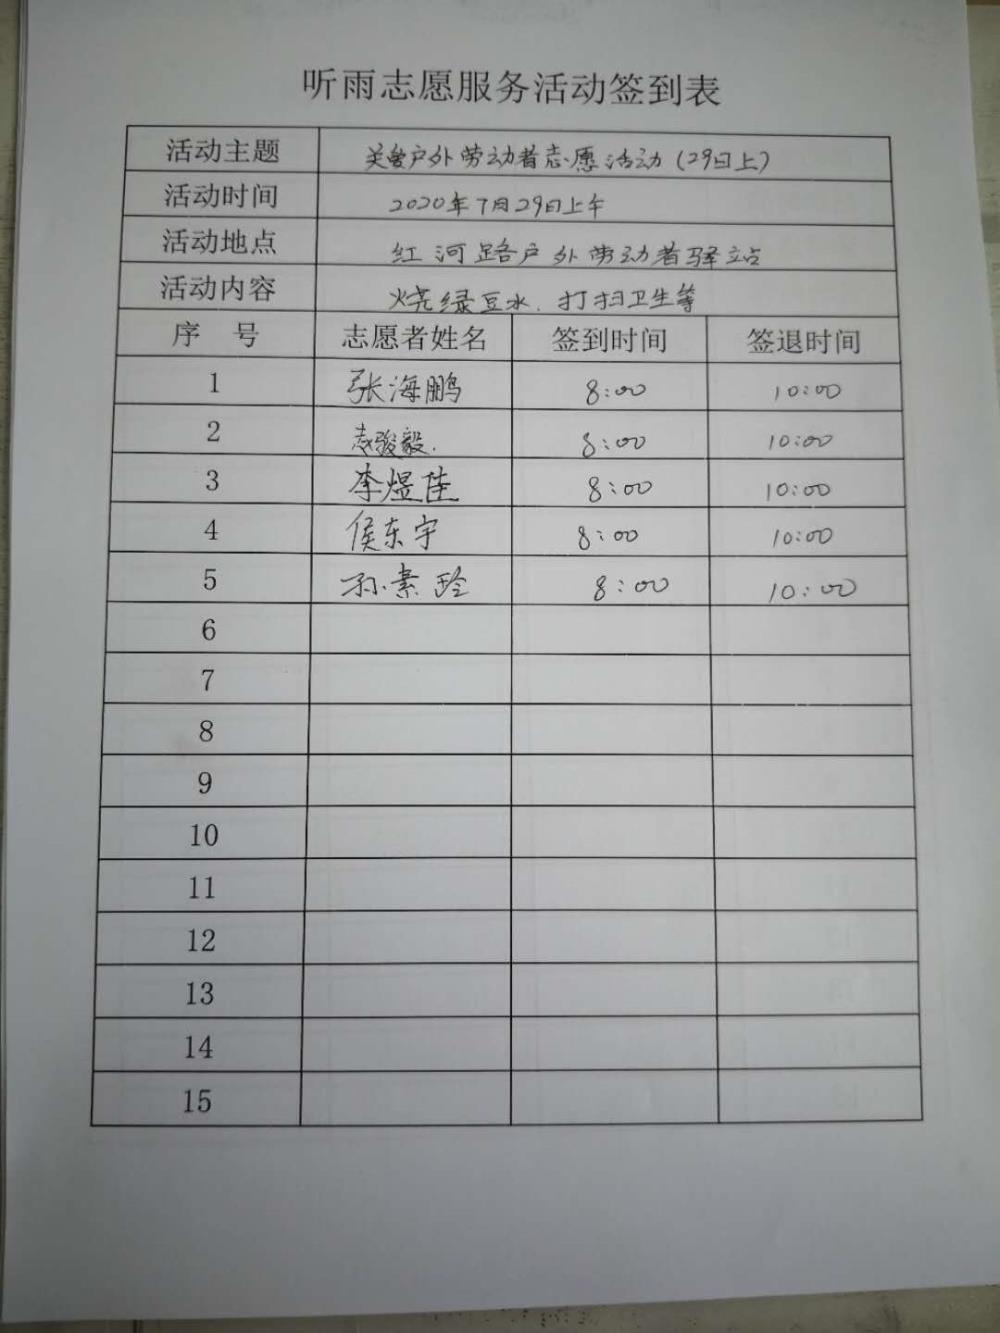 听雨志愿服务活动签到表
活动主题 关爱户外劳动者志愿活动(29日上)
活动时间 2020年7月29日上午
活动地点 红河路户外劳动者驿站
活动内容 烧绿豆水、打扫卫生等
序号 志愿者姓名 签到时间 签退时间
1 张海鹏 8:00 10:00
2 赵骏毅. 8:00 10:00
3 李煜佳 8:00 10:00
4 侯东宇 8:00 10:00
5 孙素玲 8:00 10:00
6
7
8
9
10
11
12
13
14
15